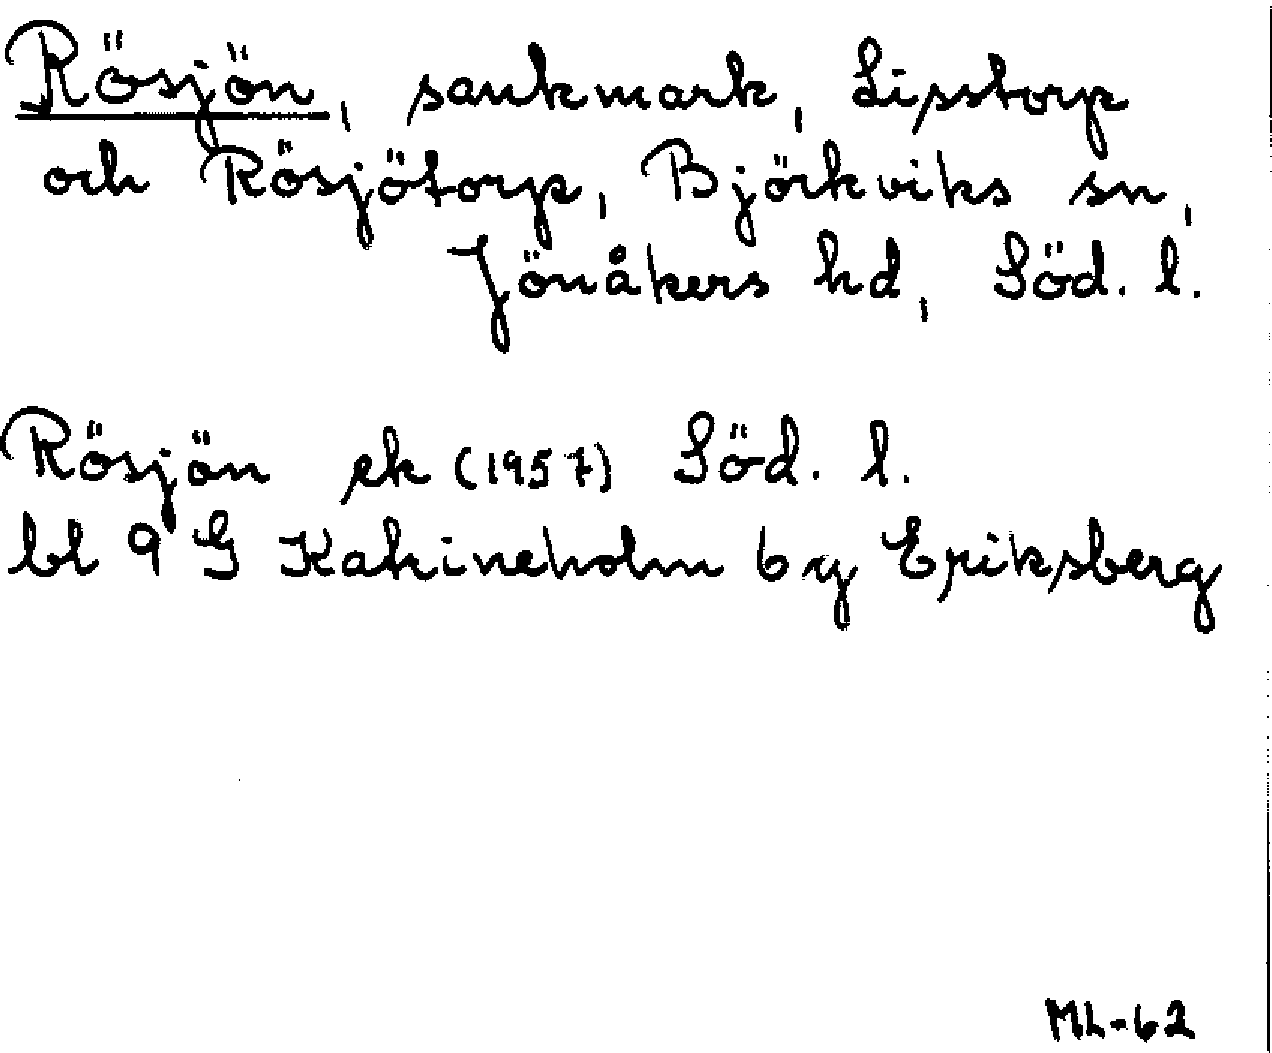 Rösjön, sankmark, Lipstorp
och Rösjötorp, Björkviks sn,
Jönåkers hd, Söd. l.
Rösjön ek (1957) Söd. l.
bl 9 G Katrineholm 6 g Eriksberg
ML-62